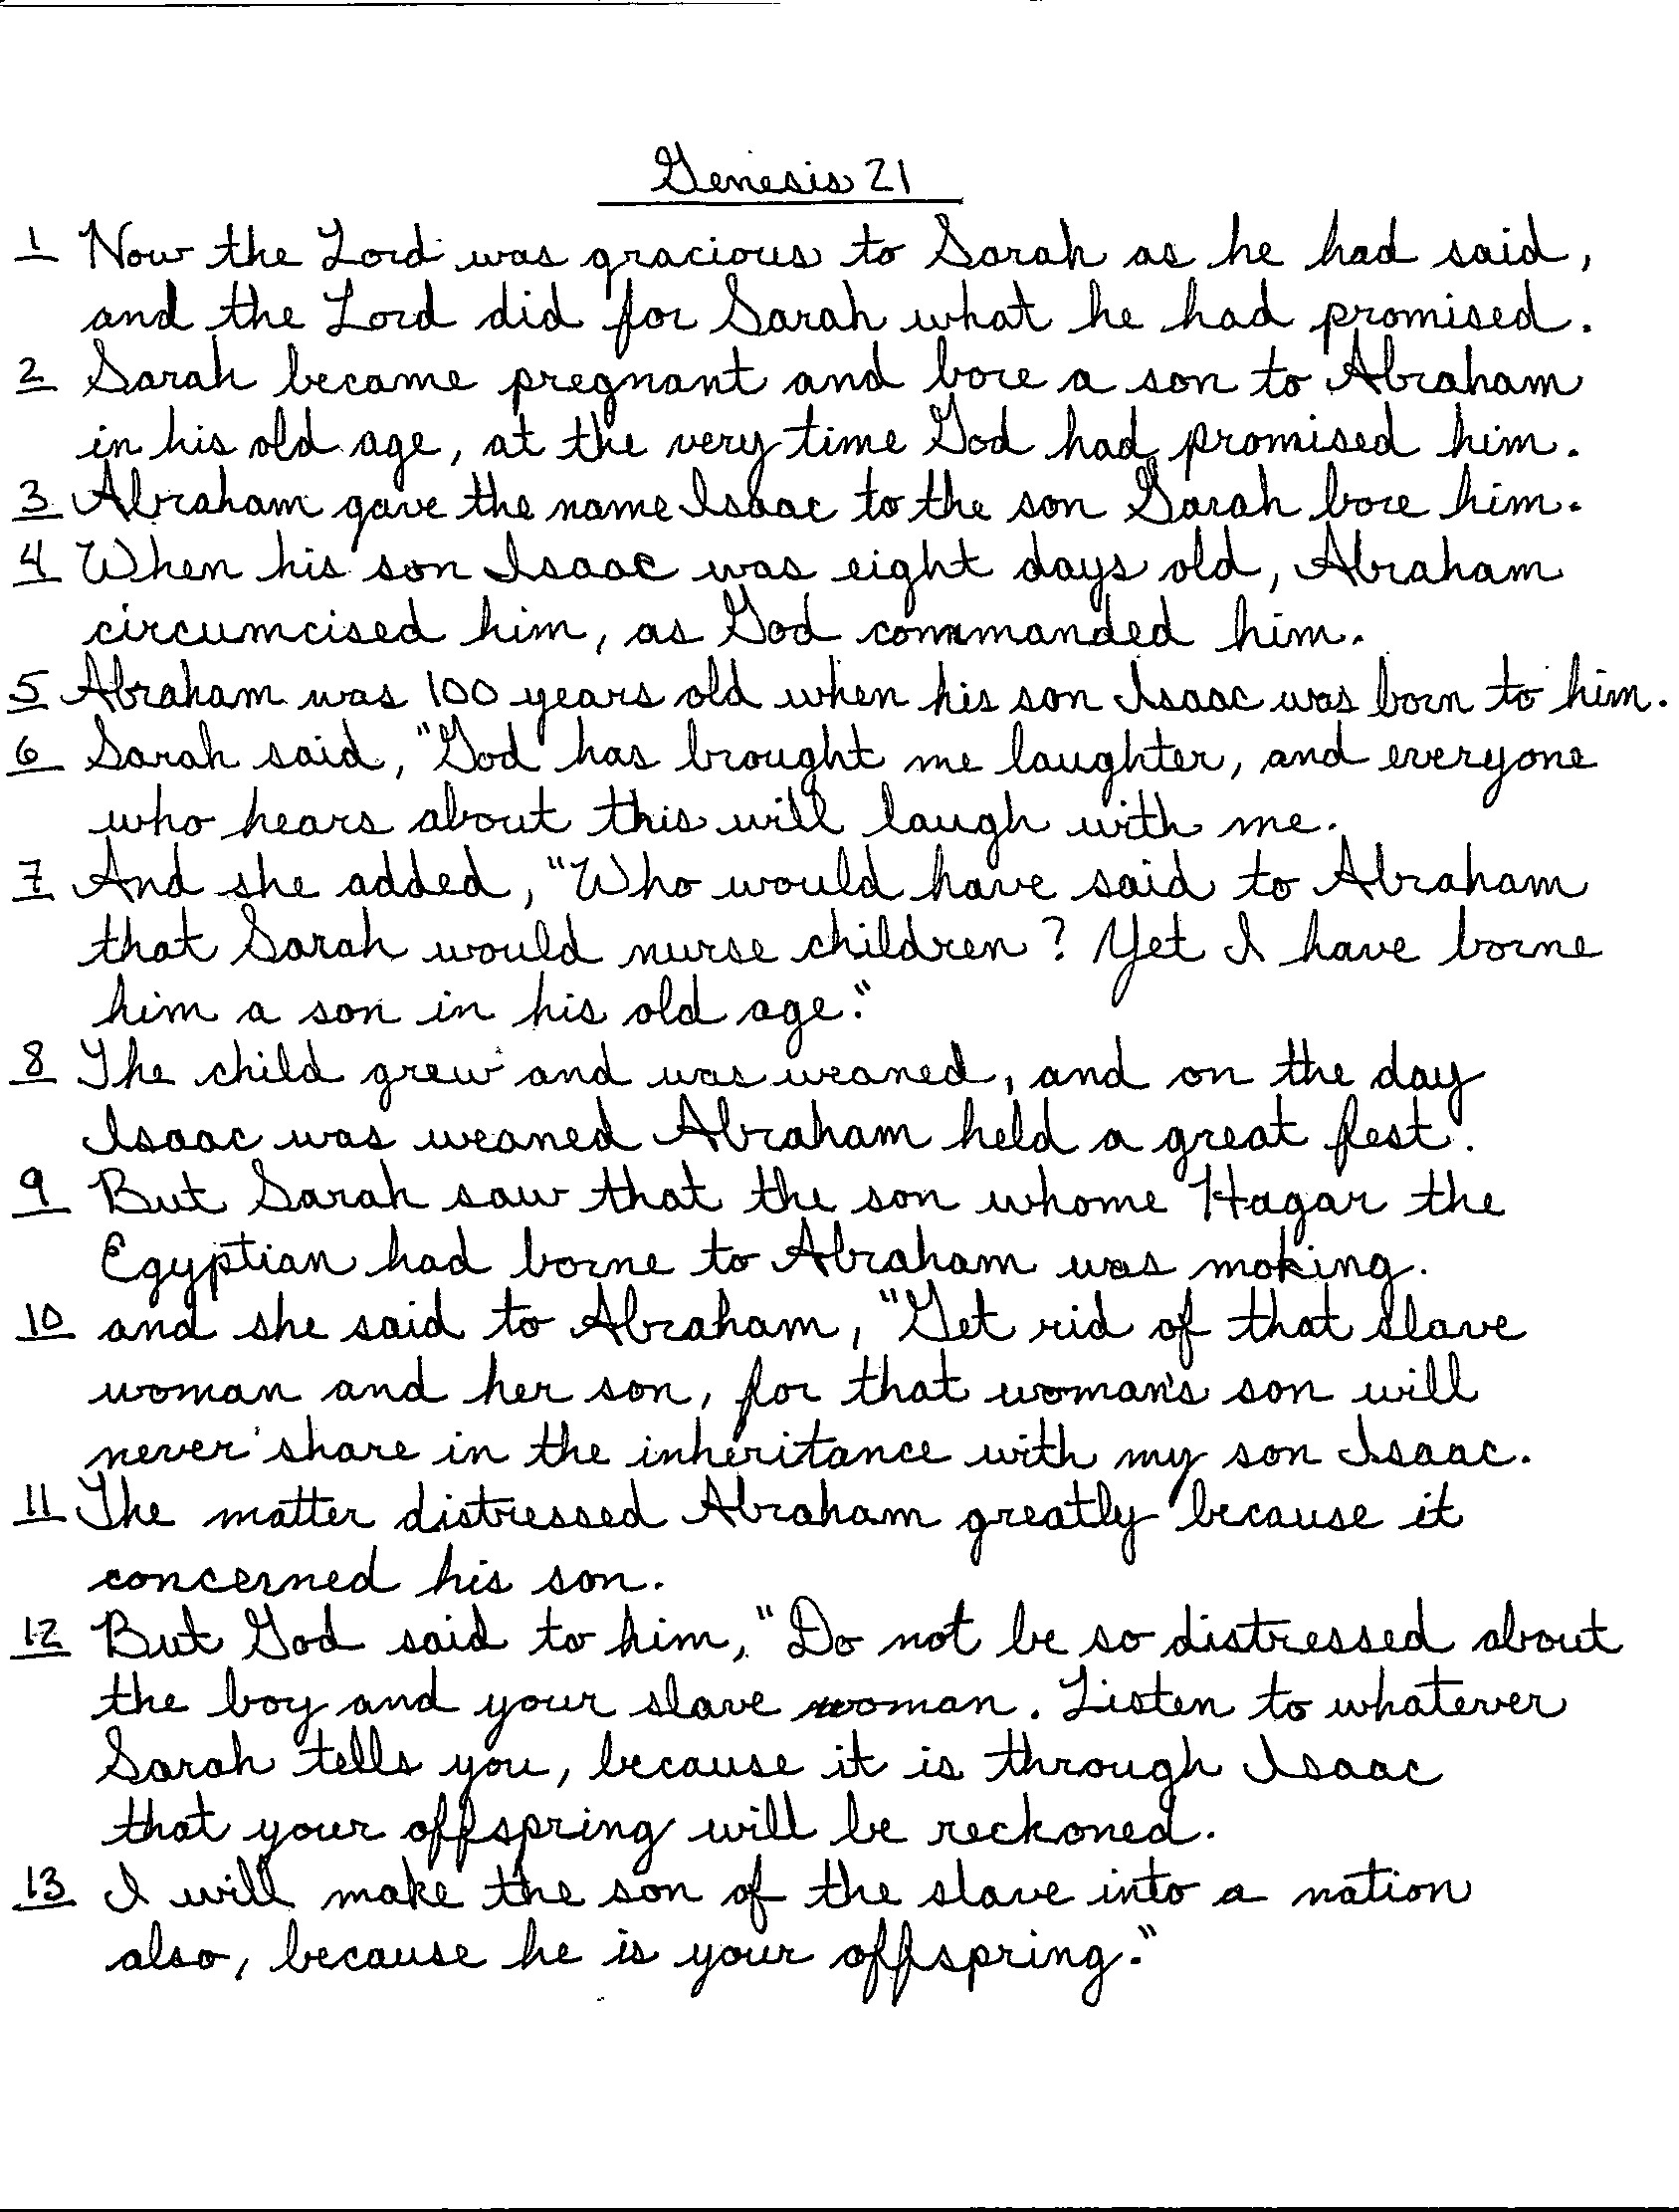 Genesis 21
1 Now the Lord was gracious to Sarah as he had said,
and the Lord did for Sarah what he had promised.
2 Sarah became pregnant and bore a son to Abraham
in his old age, at the very time God had promised him.
3 Abraham gave the name Isaac to the son Sarah bore him.
4 When his son Isaac was eight days old, Abraham
circumcised him, as God commanded him.
5 Abraham was 100 years old when his son Isaac was born to him.
6 Sarah said, "God has brought me laughter, and everyone
who hears about this will laugh with me.
7 And she added, "Who would have said to Abraham
that Sarah would nurse children? Yet I have borne
him a son in his old age."
8 The child grew and was weaned, and on the day
Isaac was weaned Abraham held a great fest.
9 But Sarah saw that the son whome Hagar the
Egyptian had borne to Abraham was moking.
10 and she said to Abraham, "Get rid of that slave
woman and her son, for that woman's son will
never share in the inheritance with my son Isaac.
11 The matter distressed Abraham greatly because it
concerned his son.
12 But God said to him, "Do not be so distressed about
the boy and your slave woman. Listen to whatever
Sarah tells you, because it is through Isaac
that your offspring will be reckoned.
13 I will make the son of the slave into a nation
also, because he is your offspring."